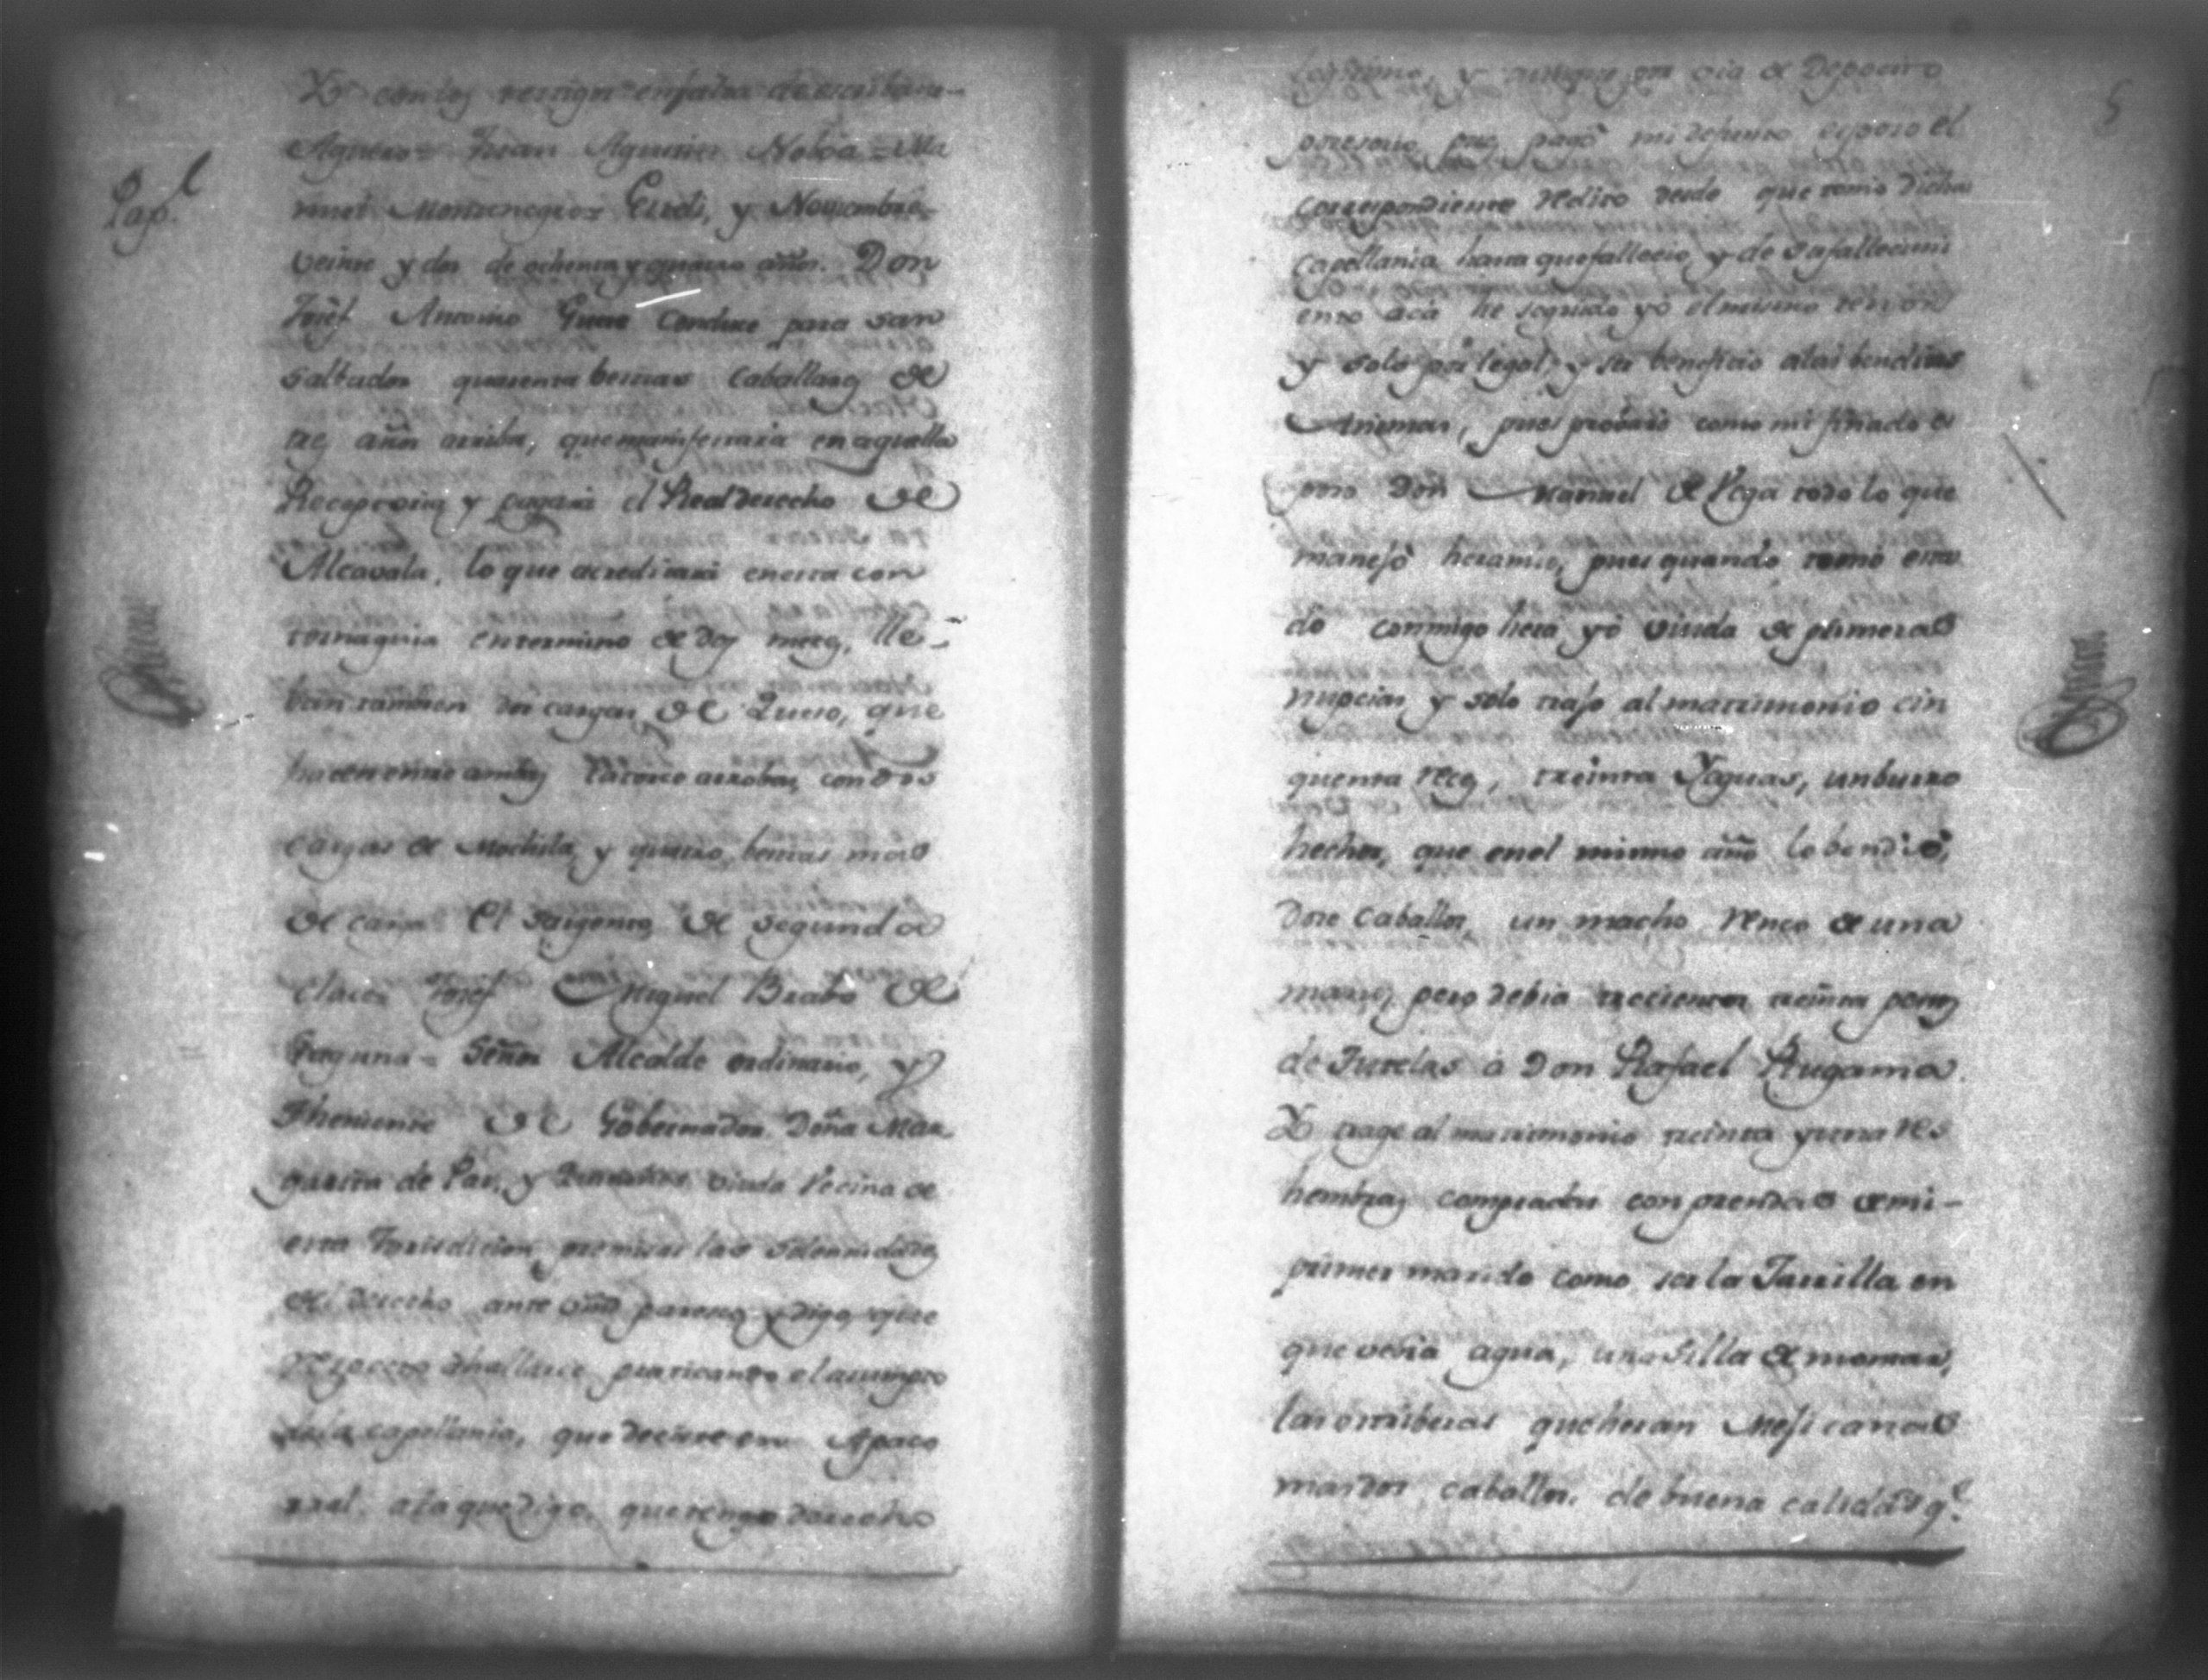 Yo con los testigos en falta de escribano
Aguero= Juan Agustin Noboa= Ma
nuel Montenegro= Esteli, y Noviembre
veinte y dos de ochenta y quatro años. Don
Josef Antonio conduce para San
Salbador quarenta bestias Caballares de
tres años arriba, que manifestará en aquella
Receptoria y pagará el Real derecho de
Alcavala, lo que acreditará en esta con
tornaguia en termino de dos meses, lle-
ban tambien dos cargas de Queso, que
hacen entre ambas catorce arrobas, con dos
cargas de Mochila, y quatro bestias mas
de carga= El Sargento de segunda
Clase= Josef Miguel Brabo de
Laguna= Señor Alcalde ordinario, y
Theniente de Gobernador. Doña Mar
garita de Paz, y viuda Vecina de
esta Jurisdicion, premisas las Solemnidades
de derecho ante Vmd paresco y digo, que
praticando el asumpto
de la capellania, que
a la que digo, que tengo derecho
Pag.l
legitimo, y aunque por via de Deposito
por esto, pues pagó mi defunto esposo el
correspondiente redito desde que tomó dicha
capellania hasta que fallecio y de su fallecimi
ento acá he seguido yo el mismo tenor
y solo por legal, y su beneficio a las benditas
Animas, pues probaré como mi finado es
poso Don Manuel de Vega todo lo que
manejó hera mio, pues quando tomó esta
do conmigo hera yo viuda de primeras
nupcias y solo trajo al matrimonio cin
quenta reces, treinta Yeguas, un burro
hechor, que en el mismo año lo bendió,
Doce caballos, un macho renco de una
mano, pero debia trecientos treinta pesos
de Tutelas á Don Rafael Lugama.
Yo trage al matrimonio treinta y una res
hembras compradas con prendas de mi-
primer marido como ser la Tasilla en
que vevia agua, una silla de montar,
las estriberas que heran Mesicanas
mas dos caballos de buena calidad q.e
5